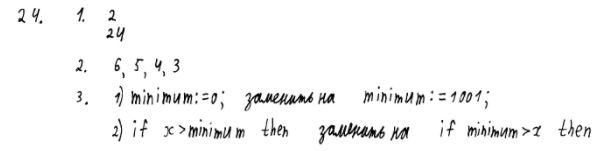 24. 1. 2
24
2. 6, 5, 4, 3
3. 1) minimum:=0; заменить на minimum:=1001;
2) if x>minimum then заменить на if minimum>x then